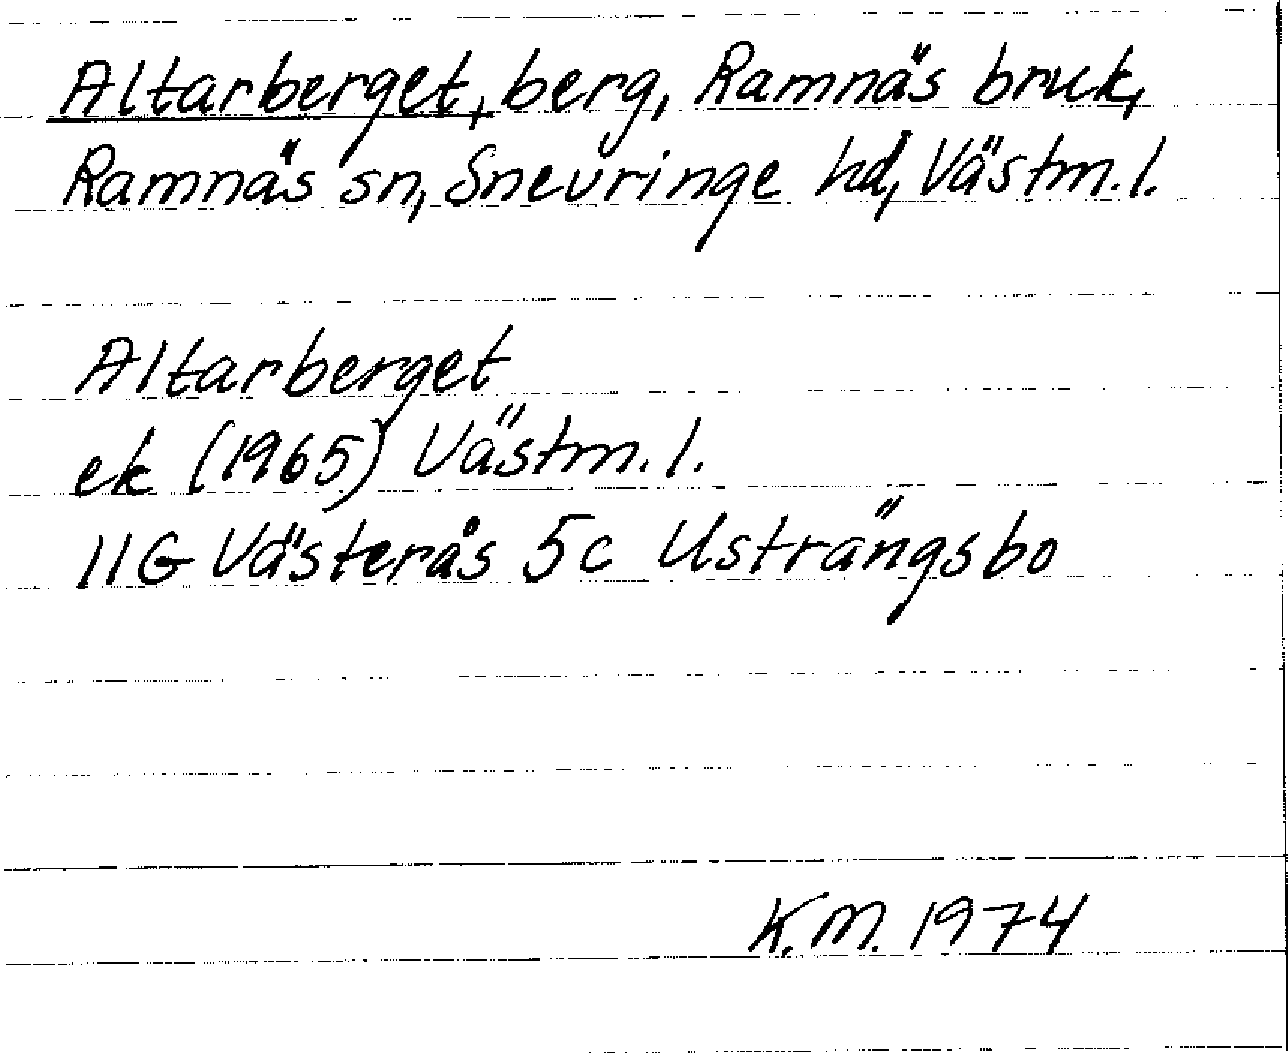 Altarberget, berg, Ramnäs bruk,
Ramnäs sn, Snevringe hd, Västm. l.
Altarberget
ek (1965) Västm. l.
11G Västerås 5c Usträngsbo
K.M. 1974